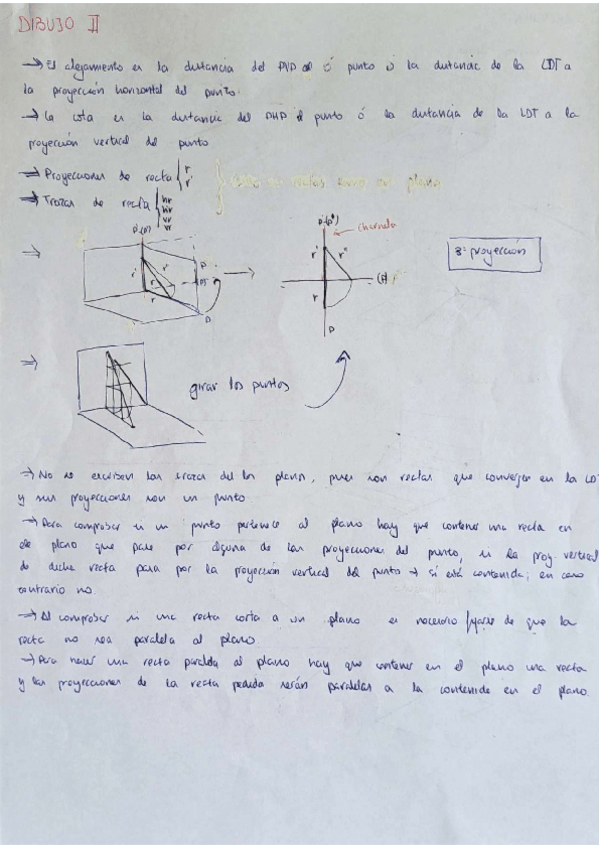 DIBUJO II
→ El alejamiento es la distancia del PVP al punto ó la distancia de la LDT a
la proyección horizontal del punto.
→ La cota es la distancia del PHP al punto ó la distancia de la LDT a la
proyección vertical del punto
→ Proyecciones de recta { r r'
→ Trazas de recta { hr hr' vr vr'
3ª proyección
charnela
r' r'' r
P
girar los puntos
⇒ No se escriben las trazas del plano, pues son rectas que convergen en la LDT
y sus proyecciones son un punto
→ Para comprobar si un punto pertenece al plano hay que contener una recta en
ese plano que pase por alguna de las proyecciones del punto, si la proy. vertical
de dicha recta pasa por la proyección vertical del punto → sí está contenida; en caso
contrario no.
→ Al comprobar si una recta corta a un plano es necesario fijarse de que la
recta no sea paralela al plano.
→ Para hacer una recta paralela al plano hay que contener en el plano una recta
y las proyecciones de la recta pedida serán paralelas a la contenida en el plano.